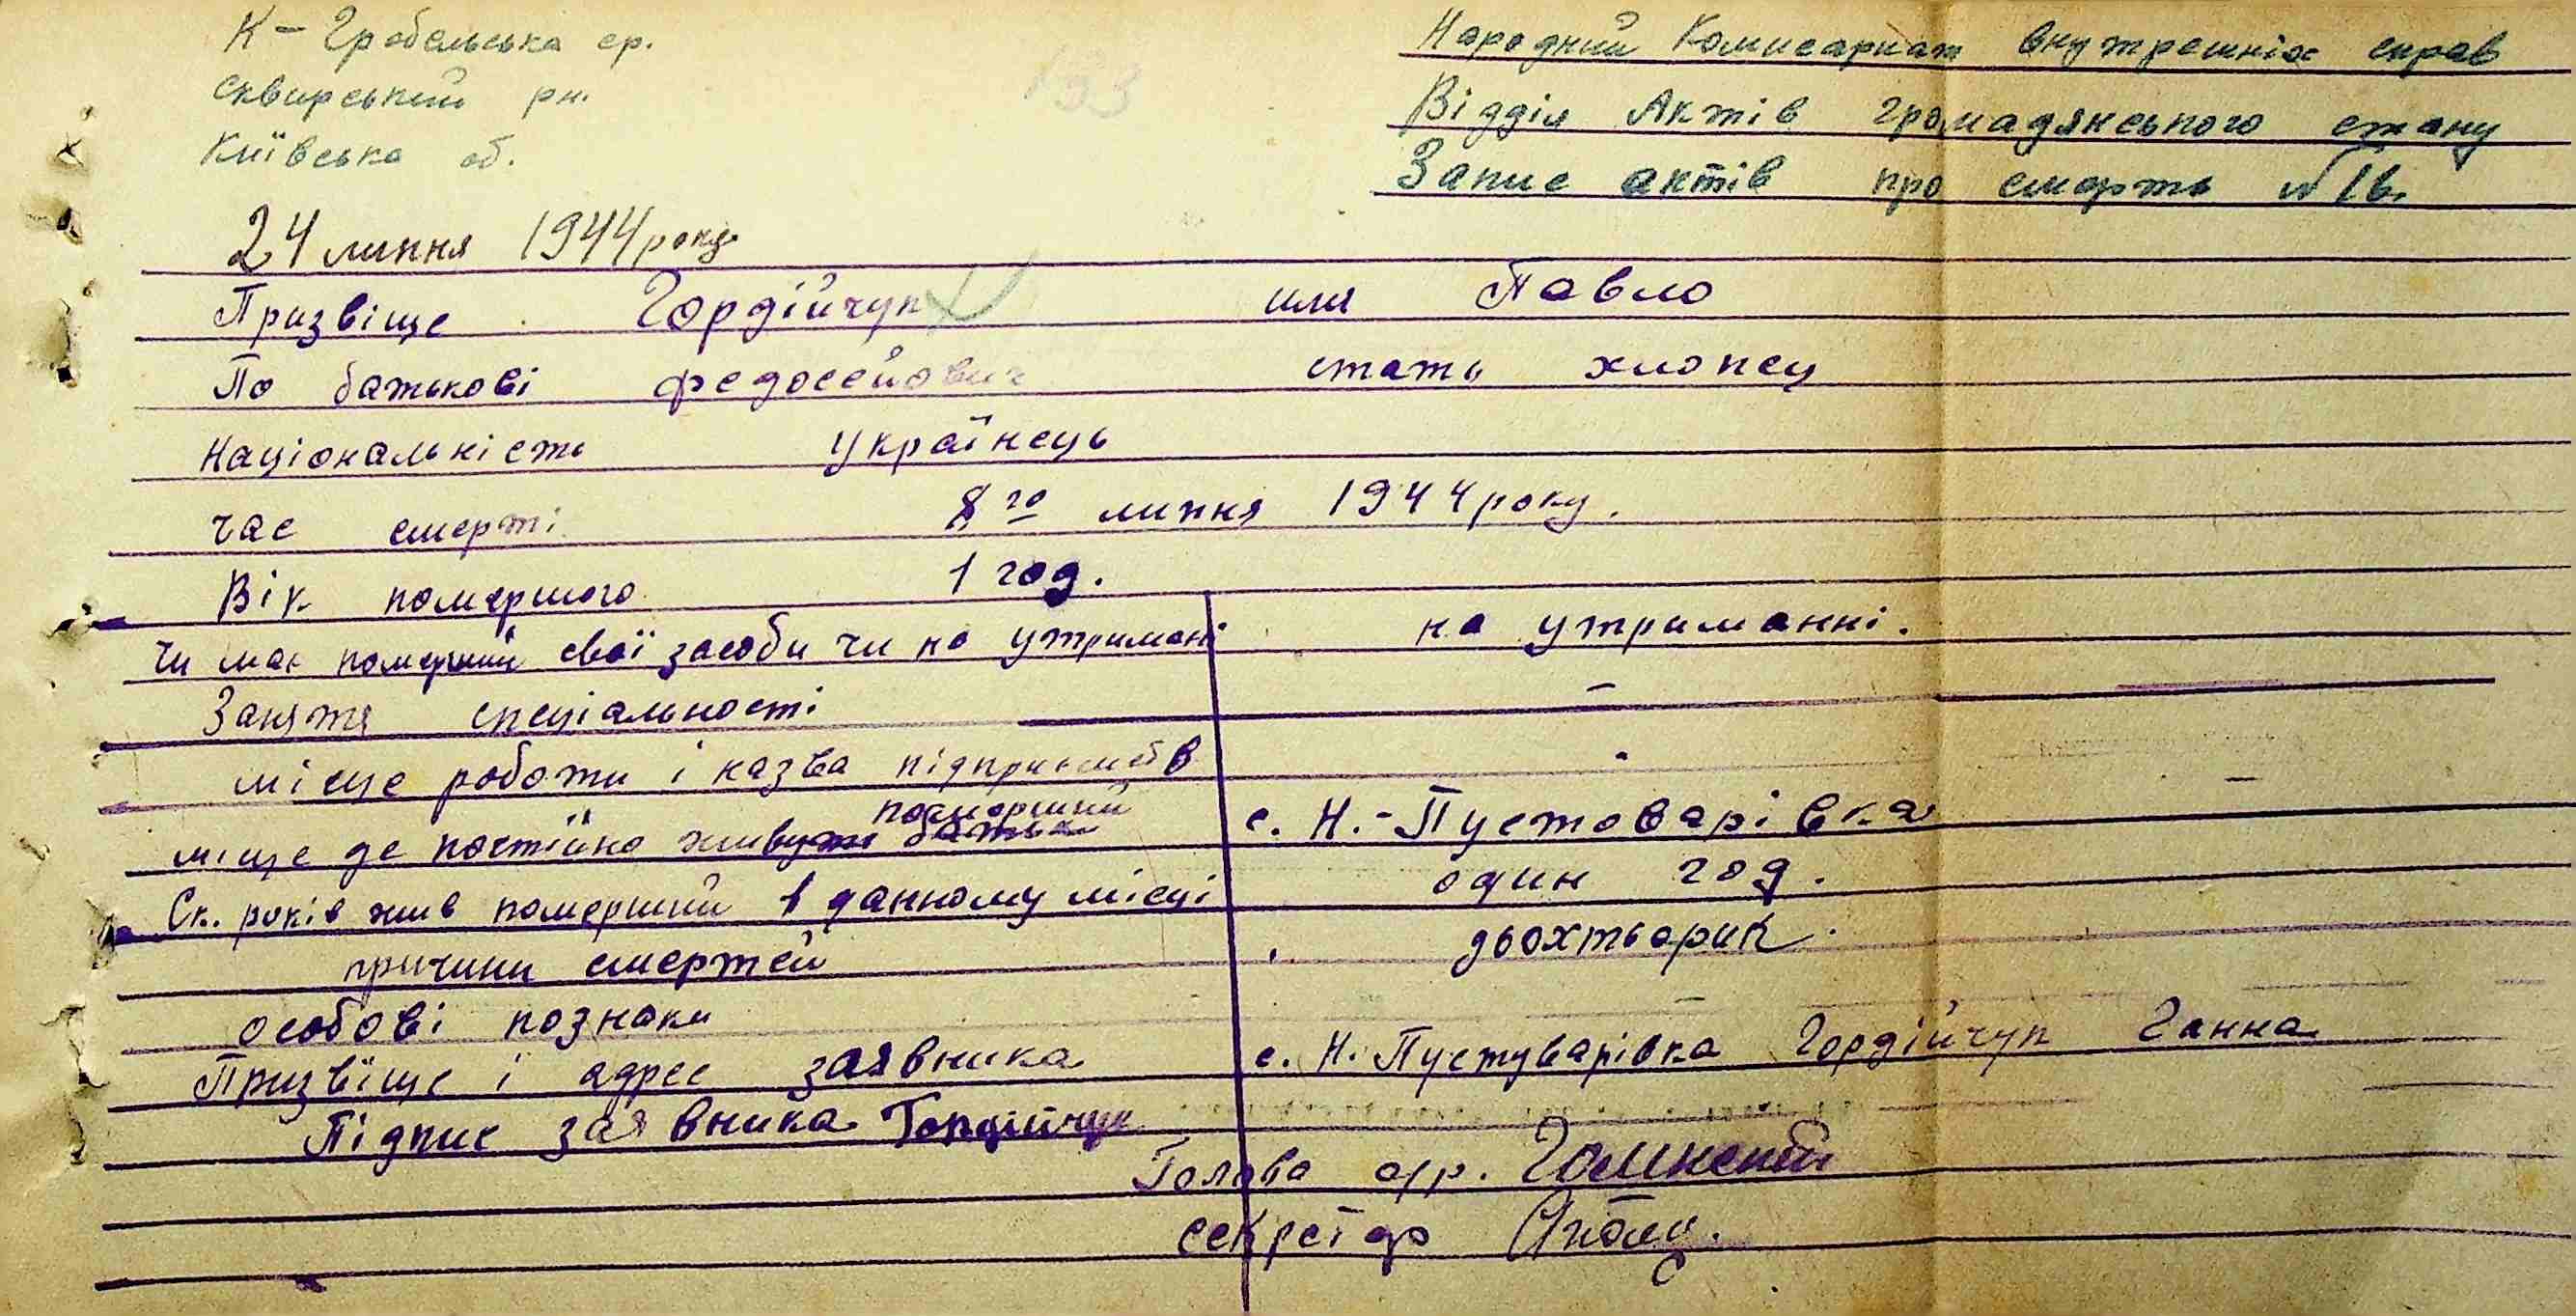 К-Гробельська ср.
Сквирський рн.
Київська об.
193
Народний Комисариат внутрешніх справ
Відділ Актів громадянського стану
Запис актів про смерть №16.
24 липня 1944 року
Призвіще Гордійчук имя Павло
По батькові Федосейович стать хлопец
Національність українець
час смерті 8го липня 1944 року.
Вік помершого 1 год.
Чи має померший свої засоби чи на утримані на утриманні.
Заняття спеціальності —
місце роботи і назва підприємств —
померший
місце де постійно живуть батьки с. Н.-Пустоварівка
Ск. років жив померший в данному місці один год.
причини смертей двохтьорик.
особові познаки
Призвіще і адрес заявника с. Н. Пустуварівка Гордійчук Ганна
Підпис заявника Гордійчук
Голова с/р.
секретар